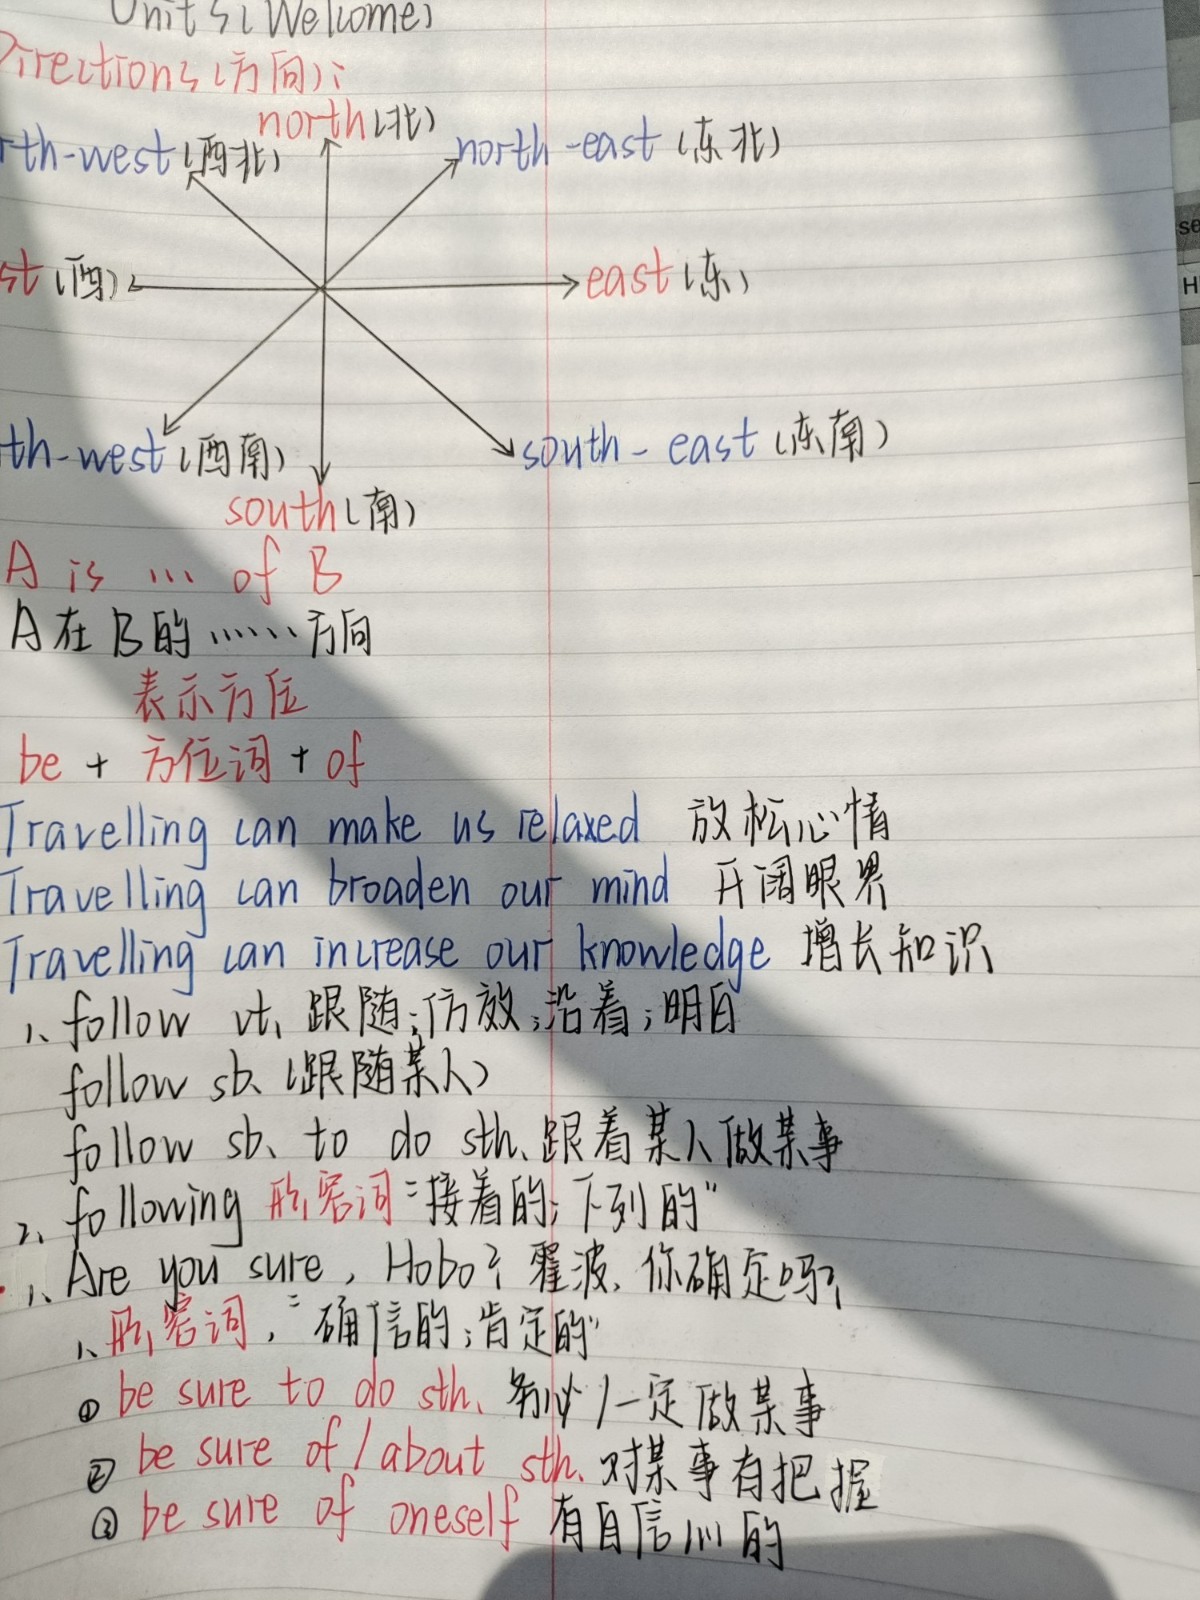 Unit 5 (Welcome)
Directions (方向):
north (北)
rth-west (西北)
north-east (东北)
st (西)
east (东)
th-west (西南)
south-east (东南)
south (南)
A is ... of B
A在B的……方向
表示方位
be + 方位词 + of
Travelling can make us relaxed 放松心情
Travelling can broaden our mind 开阔眼界
Travelling can increase our knowledge 增长知识
1、follow vt、跟随;仿效;沿着;明白
follow sb、(跟随某人)
follow sb、to do sth、跟着某人做某事
2、following 形容词 "接着的;下列的"
1、Are you sure, Hobo? 霍波,你确定吗?
1、形容词,"确信的;肯定的"
① be sure to do sth、务必/一定做某事
② be sure of/about sth、对某事有把握
③ be sure of oneself 有自信心的
se
H